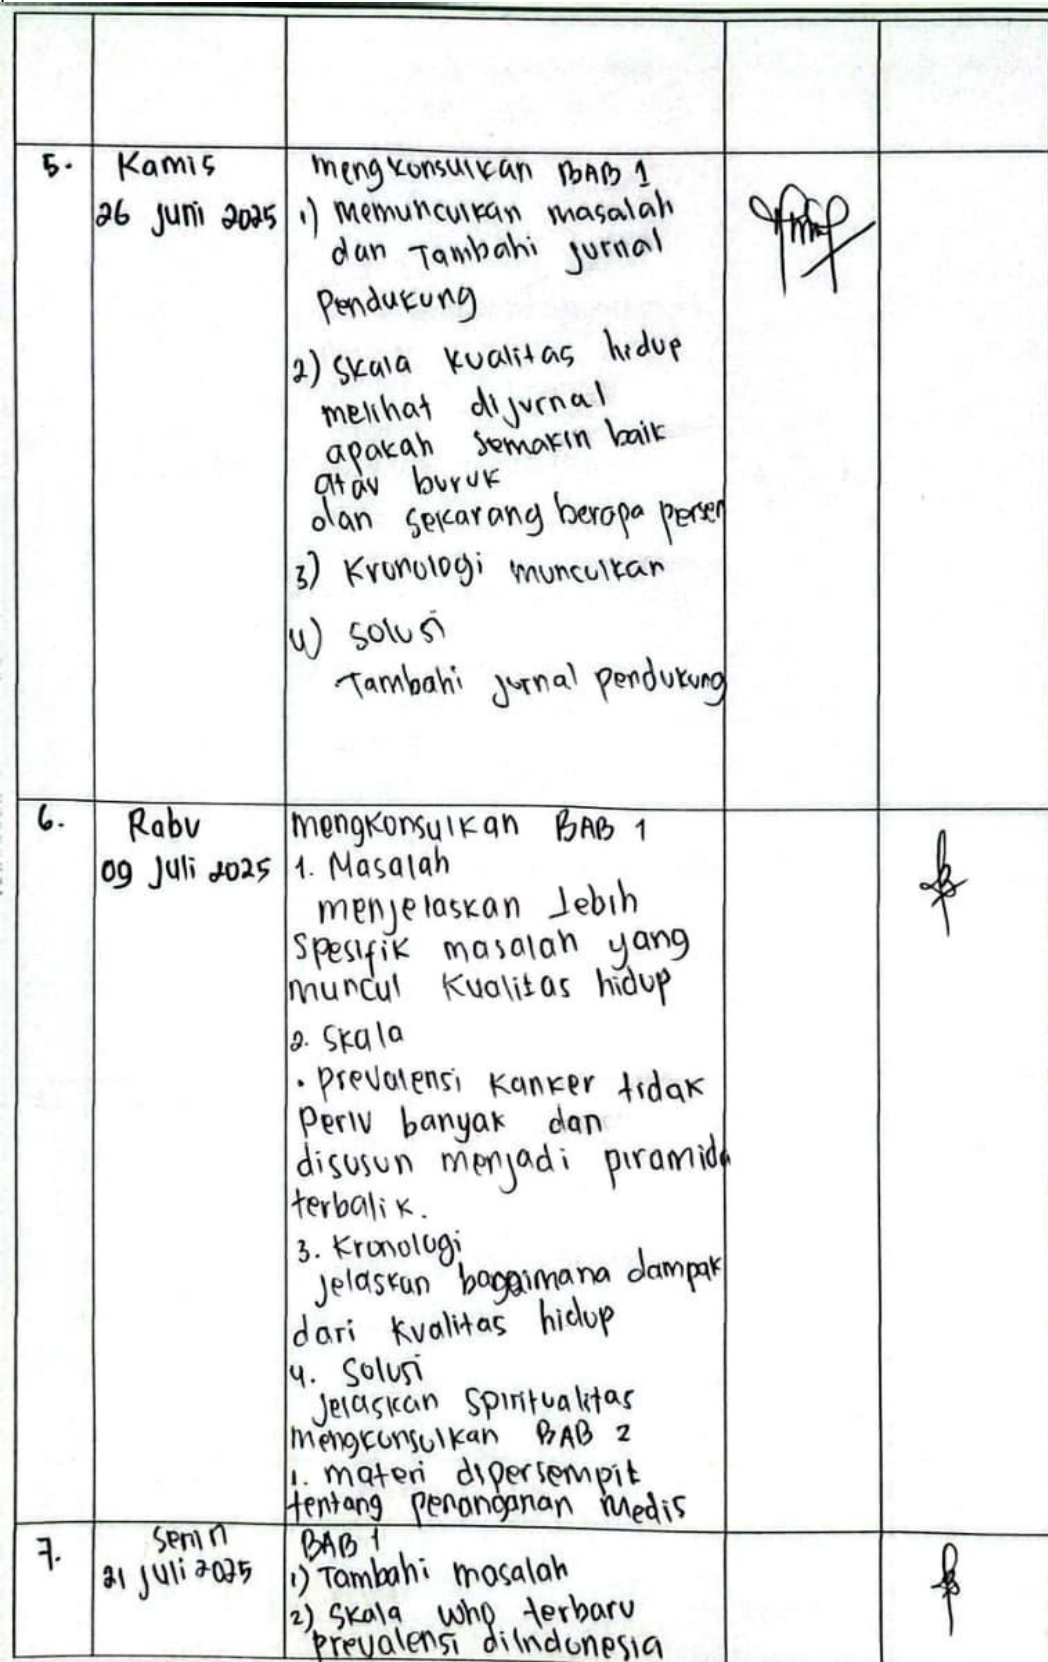 5. Kamis mengkonsulkan BAB 1
26 Juni 2025 1) Memunculkan masalah
dan Tambahi jurnal
Pendukung
2) Skala kualitas hidup
melihat dijurnal
apakah semakin baik
atau buruk
dan sekarang berapa persen
3) Kronologi munculkan
4) Solusi
Tambahi jurnal pendukung
6. Rabu mengkonsulkan BAB 1
09 Juli 2025 1. Masalah
menjelaskan lebih
spesifik masalah yang
muncul kualitas hidup
2. Skala
• prevalensi kanker tidak
perlu banyak dan
disusun menjadi piramida
terbalik.
3. Kronologi
jelaskan bagaimana dampak
dari kualitas hidup
4. Solusi
jelaskan spiritualitas
mengkonsulkan BAB 2
1. materi dipersempit
tentang penanganan medis
7. Senin BAB 1
21 Juli 2025 1) Tambahi masalah
2) Skala who terbaru
prevalensi diIndonesia